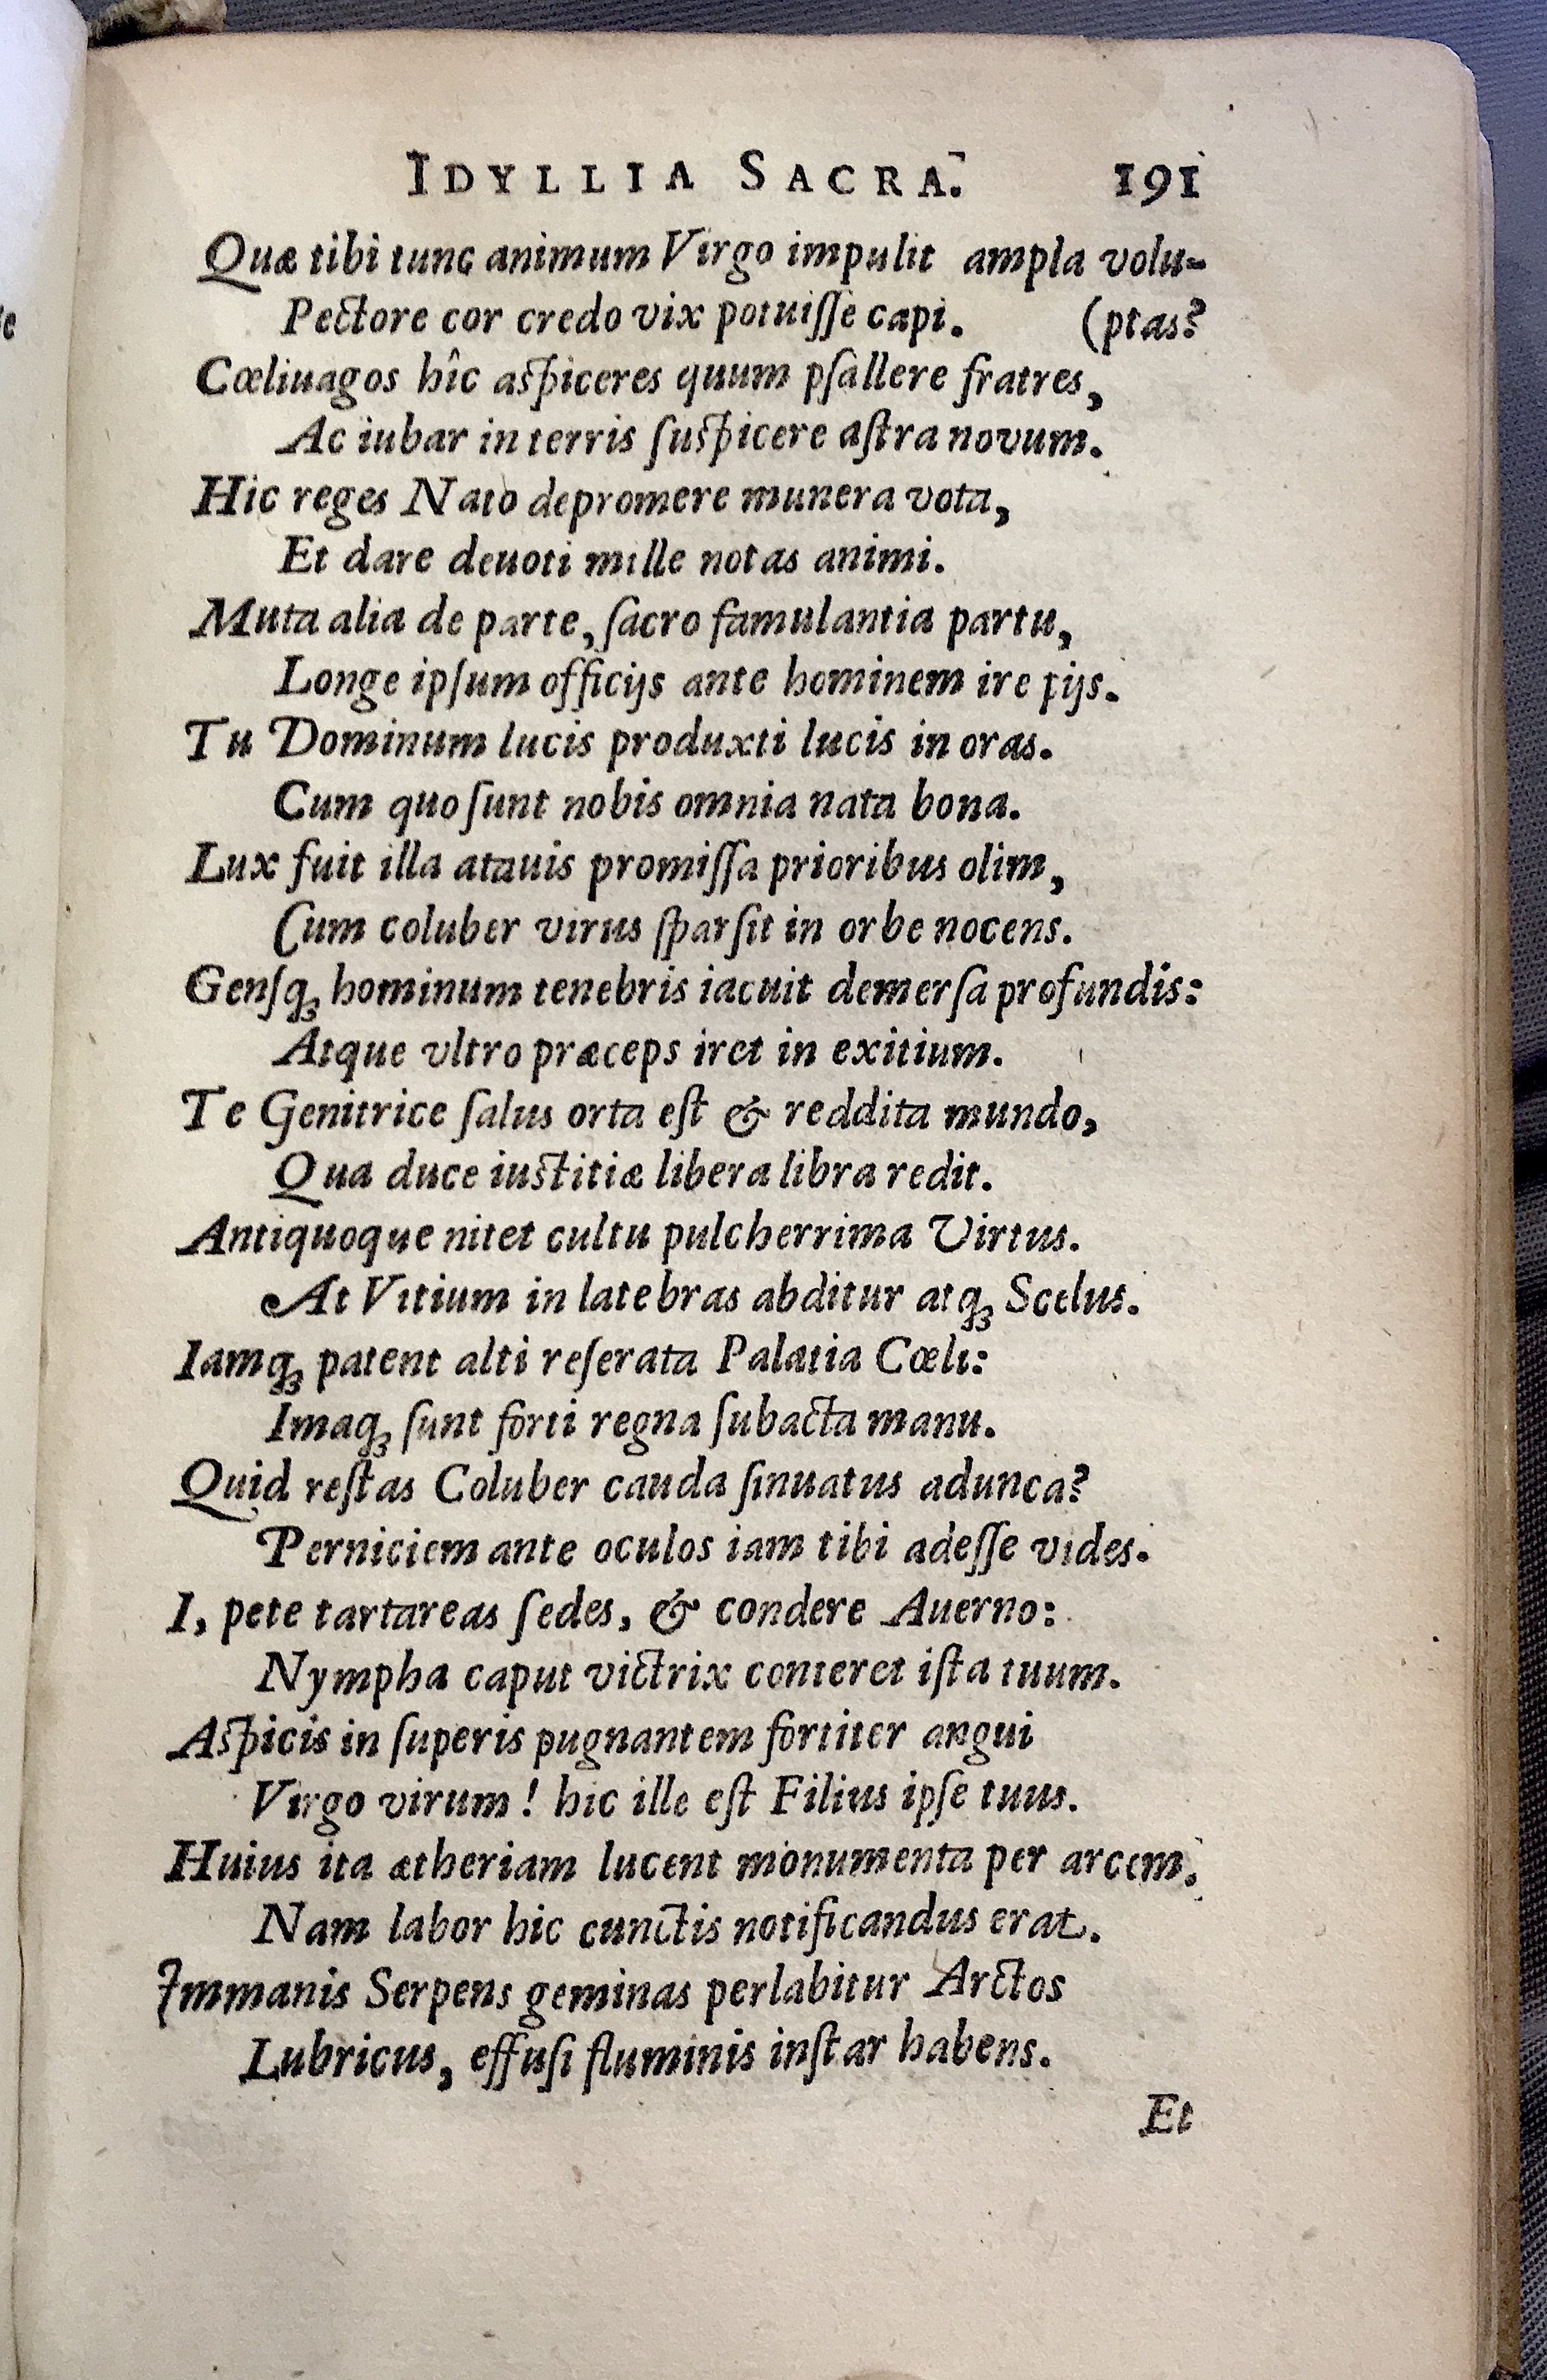 IDYLLIA SACRA. 191
Quæ tibi tunc animum Virgo impulit ampla volu-
Pectore cor credo vix potuiſſe capi. (ptas?
Cœliuagos hîc aſpiceres quum pſallere fratres,
Ac iubar in terris ſuſpicere aſtra novum.
Hic reges Nato depromere munera vota,
Et dare deuoti mille notas animi.
Muta alia de parte, ſacro famulantia partu,
Longe ipſum officijs ante hominem ire pijs.
Tu Dominum lucis produxti lucis in oras.
Cum quo ſunt nobis omnia nata bona.
Lux fuit illa atauis promiſſa prioribus olim,
Cum coluber virus ſparſit in orbe nocens.
Genſq; hominum tenebris iacuit demerſa profundis:
Atque vltro præceps iret in exitium.
Te Genitrice ſalus orta eſt & reddita mundo,
Qua duce iuſtitiæ libera libra redit.
Antiquoque nitet cultu pulcherrima Virtus.
At Vitium in latebras abditur atq; Scelus.
Iamq; patent alti reſerata Palatia Cœli:
Imaq; ſunt forti regna ſubacta manu.
Quid reſtas Coluber cauda ſinuatus adunca?
Perniciem ante oculos iam tibi adeſſe vides.
I, pete tartareas ſedes, & condere Auerno:
Nympha caput victrix conteret iſta tuum.
Aſpicis in ſuperis pugnantem fortiter angui
Virgo virum! hic ille eſt Filius ipſe tuus.
Huius ita ætheriam lucent monumenta per arcem.
Nam labor hic cunctis notificandus erat.
Immanis Serpens geminas perlabitur Arctos
Lubricus, effuſi fluminis inſtar habens.
Et